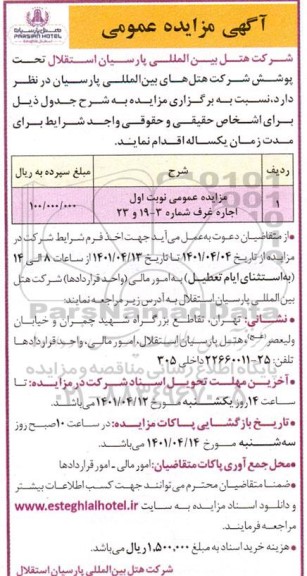 هتل پارسیان
PARSIAN HOTEL
آگهی مزایده عمومی
شرکت هتل بین المللی پارسیان استقلال تحت
پوشش شرکت هتل‌های بین‌المللی پارسیان در نظر
دارد، نسبت به برگزاری مزایده به شرح جدول ذیل
برای اشخاص حقیقی و حقوقی واجد شرایط برای
مدت زمان یکساله اقدام نمایند.
ردیف شرح مبلغ سپرده به ریال
۱ مزایده عمومی نوبت اول اجاره غرف شماره ۳-۱۹ و ۲۳ ۱۰۰/۰۰۰/۰۰۰
از متقاضیان دعوت به عمل می‌آید جهت اخذ فرم شرایط شرکت در
مزایده از تاریخ ۱۴۰۱/۰۴/۰۴ تا تاریخ ۱۴۰۱/۰۴/۱۳ از ساعات ۸ الی ۱۴
(به استثنای ایام تعطیل) به امور مالی (واحد قراردادها) شرکت هتل
بین المللی پارسیان استقلال به آدرس زیر مراجعه نمایند:
نشانی: تهران، تقاطع بزرگراه شهید چمران و خیابان
ولیعصر (عج) هتل پارسیان استقلال، امور مالی، واحد قراردادها
تلفن: ۲۵-۲۲۶۶۰۰۱۱ داخلی ۳۰۵
آخرین مهلت تحویل اسناد شرکت در مزایده: تا
ساعت ۱۴ روز یکشنبه مورخ ۱۴۰۱/۰۴/۱۲ می‌باشد.
تاریخ بازگشایی پاکات مزایده: در ساعت ۱۰ صبح روز
سه شنبه مورخ ۱۴۰۱/۰۴/۱۴ می‌باشد.
محل جمع آوری پاکات متقاضیان: امور مالی - امور قراردادها
ضمنا متقاضیان محترم می‌توانند جهت کسب اطلاعات بیشتر
و دانلود اسناد مزایده به سایت www.esteghlalhotel.ir
مراجعه فرمایند.
هزینه خرید اسناد به مبلغ ۱,۵۰۰,۰۰۰ ریال می‌باشد.
شرکت هتل بین المللی پارسیان استقلال